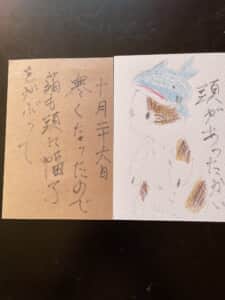 十月二十六日
寒くなったので
猫も頭に帽子
をかぶって
頭があったかい